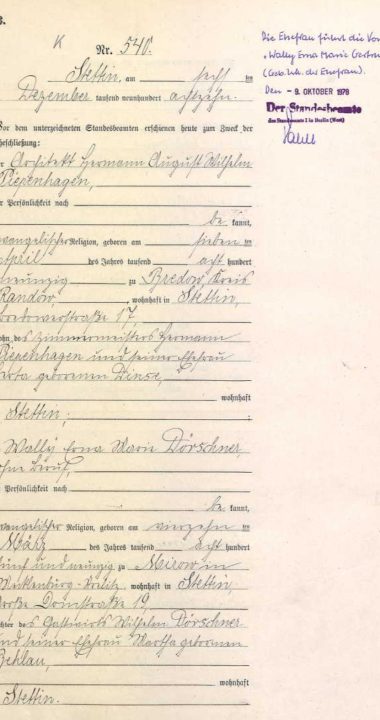 B.
K
Nr. 540.
Stettin, am sechsten
Dezember tausend neunhundert achtzehn.
Vor dem unterzeichneten Standesbeamten erschienen heute zum Zweck der
Eheschließung:
er Architekt Hermann August Wilhelm
Piepenhagen,
er Persönlichkeit nach
be kannt,
vangelischer Religion, geboren am sieben ten
April des Jahres tausend acht hundert
neunzig zu Bredow, Kreis
Randow, wohnhaft in Stettin,
straße 17,
ohn des Zimmermeisters Hermann
Piepenhagen und seiner Ehefrau
geborenen Dinse,
wohnhaft
Stettin;
Wally Erna Marie Dörschner
ohne Beruf,
Persönlichkeit nach
be kannt,
vangelischer Religion, geboren am vierzehn ten
März des Jahres tausend acht hundert
fünf und neunzig zu Mirow in
Mecklenburg-Strelitz, wohnhaft in Stettin,
Große Domstraße 19,
chter des Gastwirts Wilhelm Dörschner
und seiner Ehefrau Martha geborenen
wohnhaft
Stettin.
Die Ehefrau führt die Vor
"Wally Erna Marie Gertru
(Geb. Urk. der Ehefrau).
Den - 9. OKTOBER 1978
Der Standesbeamte
des Standesamts I in Berlin (West)